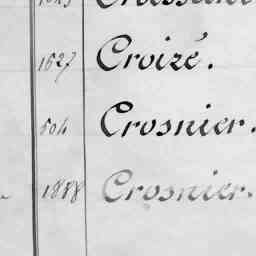 1627 Croizé.
504 Crosnier.
1888 Crosnier.